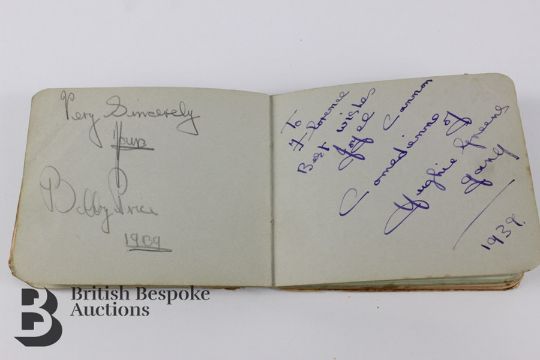 Very Sincerely
Yours
Bobby Price
1939
To
Florence
Best wishes
Joyce Cannon
Comedienne of
Hughie Greens
Gang
1939.
B
British Bespoke
Auctions